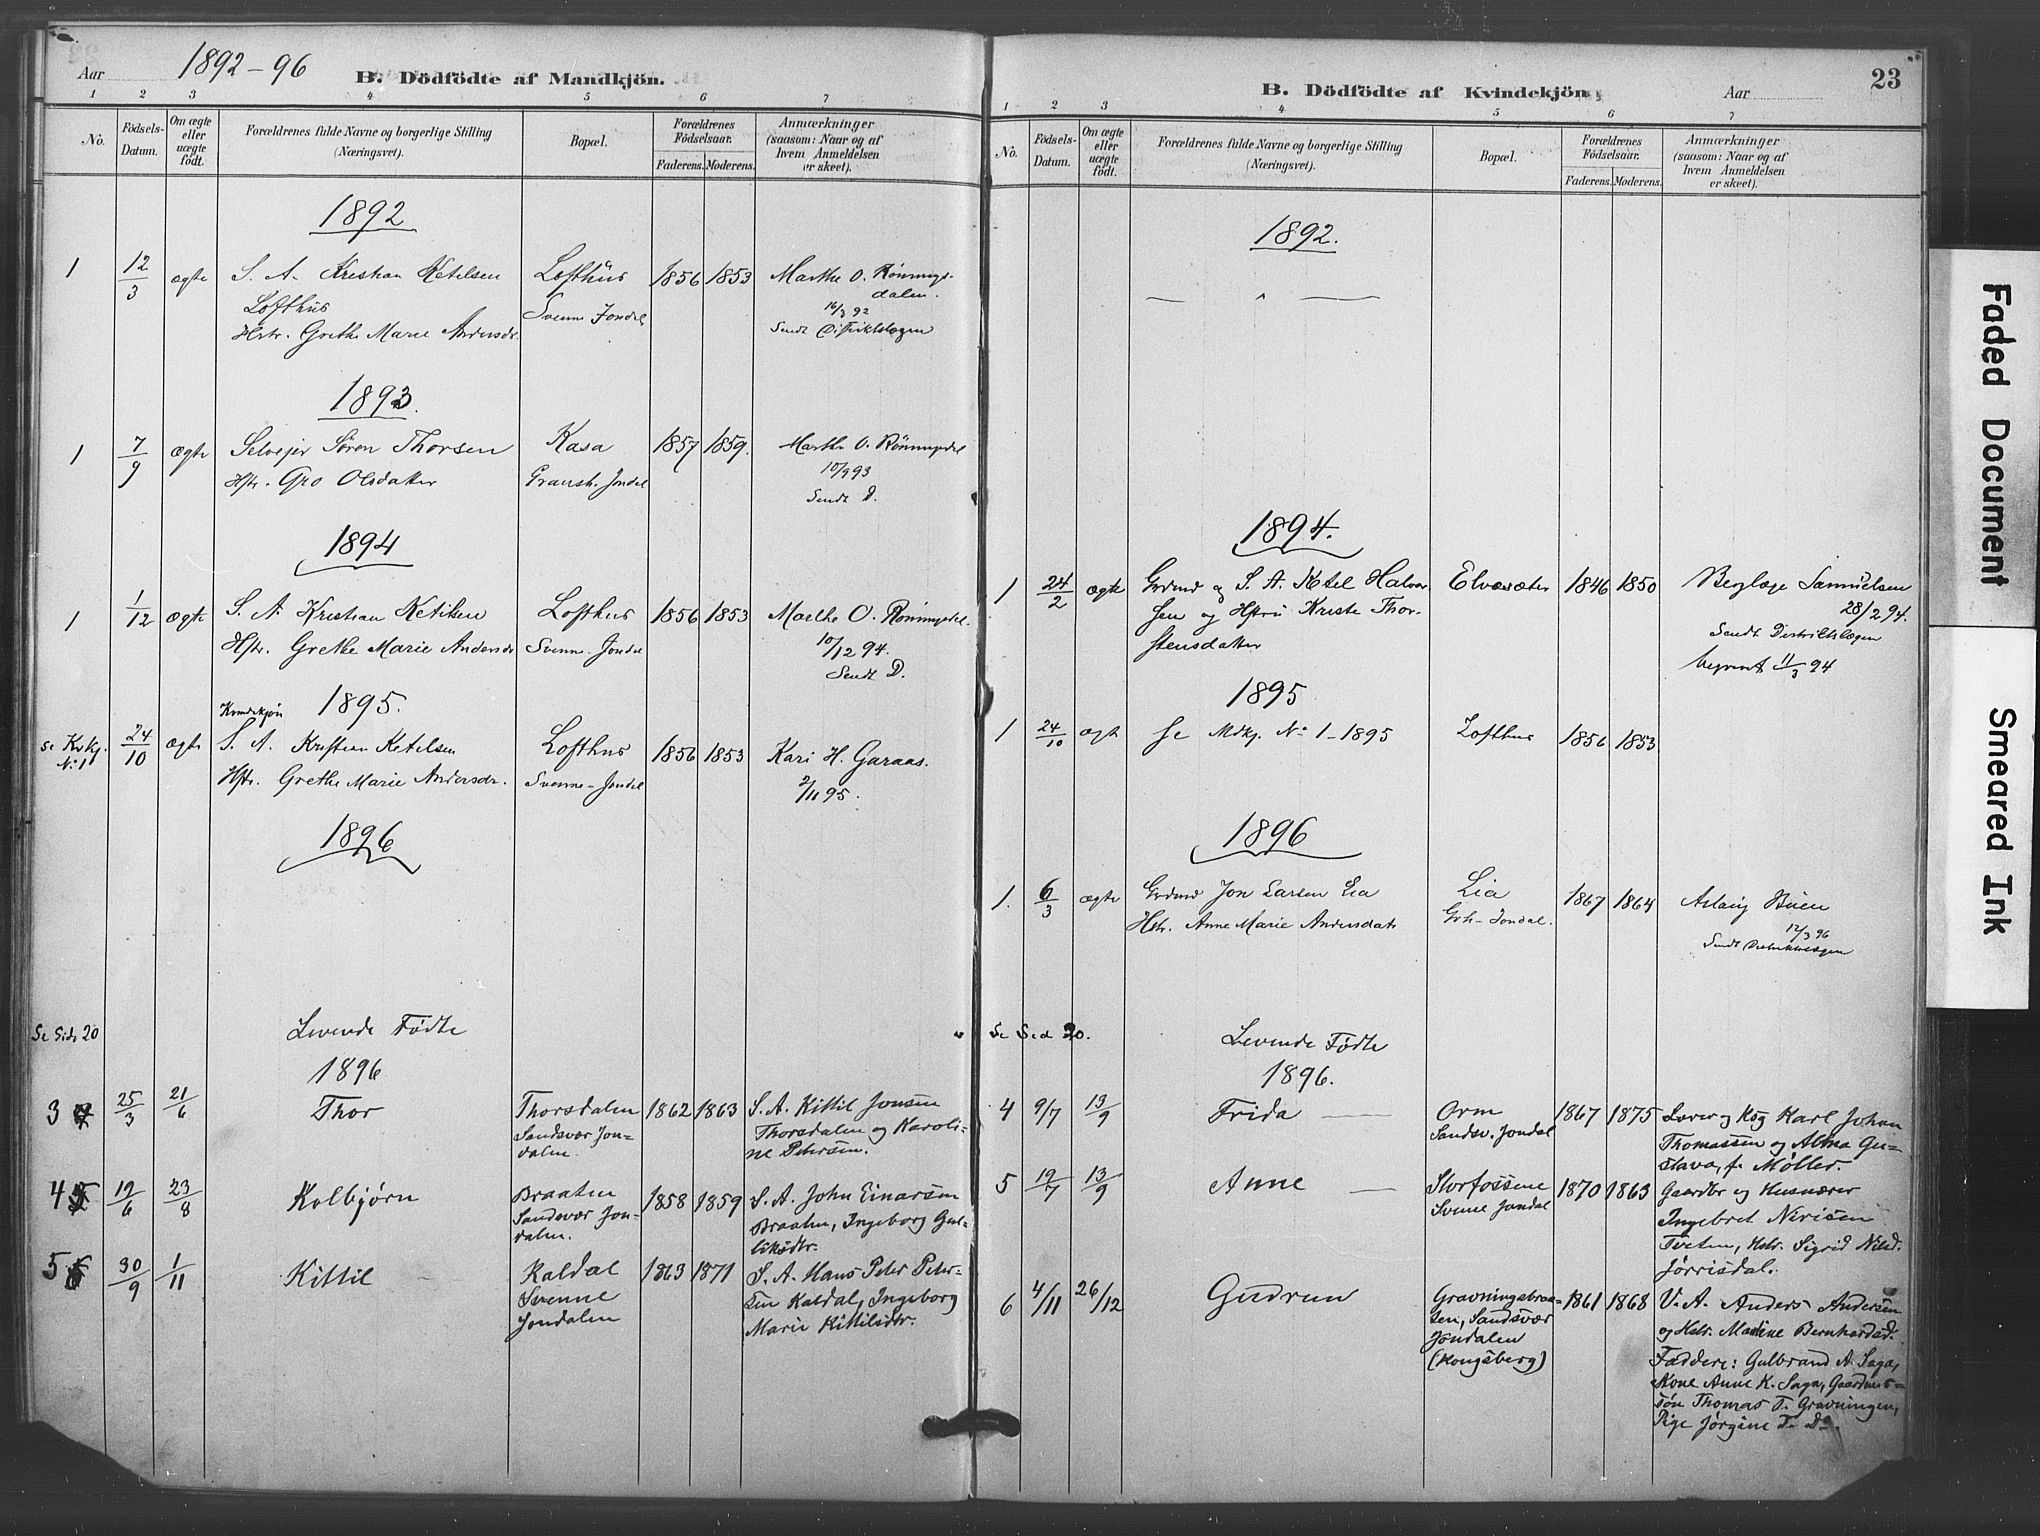 Aar 1892-96 B. Dödfödte af Mandkjön.
1 2 3 4 5 6 7
No. Födsels-Datum. Om ægte eller uægte födt. Forældrenes fulde Navne og borgerlige Stilling (Næringsvei). Bopæl. Forældrenes Födselsaar. Faderens. Moderens. Anmærkninger (saasom: Naar og af hvem Anmeldelsen er skeet).
1892
1 12/3 ægte S. A. Kristian Ketilsen Lofthus 1856 1853 Marthe O. Rönnings-
Lofthus Svenne Jondal dalen.
Hstr. Grethe Marie Andersdr. 16/3 92
Sendt Distriktslægen
1893.
1 7/9 ægte Selveier Sören Thorsen Kasa 1857 1859. Marthe O. Rönningsdal
Hstr. Gro Olsdatter Gransh. Jondal 10/9 93
Sendt D.
1894
1 1/12 ægte S. A. Kristian Ketilsen Lofthus 1856 1853 Marthe O. Rönningsdal.
Hstr. Grethe Marie Andersdr Svenne-Jondal 10/12 94.
Sendt D.
Kvindekjön 1895.
se Kvkj. N: 1 24/10 ægte S. A. Kristian Ketilsen Lofthus 1856 1853 Kari H. Garaas.
Hstr. Grethe Marie Andersdr. Svenne-Jondal 2/11 95.
1896
Se Side 20 Levende Födte
1896
3 25/3 21/6 Thor Thorsdalen 1862 1863 S. A. Kittil Jonsen
Sandsvær Jon- Thorsdalen og Karoli-
dalen. ne Petersen.
4 19/6 23/8 Kolbjørn Braaten 1858 1859 S. A. John Einarsen
Sandsvær Jon- Braaten, Ingeborg Gul-
dalen. liksdtr.
5 30/9 1/11 Kittil Kaldal 1863 1871 S. A. Hans Peter Peter-
Svenne sen Kaldal, Ingeborg
Jondalen Marie Kittilsdtr.
B. Dödfödte af Kvindekjön. Aar 23
1 2 3 4 5 6 7
No. Födsels-Datum. Om ægte eller uægte födt. Forældrenes fulde Navne og borgerlige Stilling (Næringsvei). Bopæl. Forældrenes Födselsaar. Faderens. Moderens. Anmærkninger (saasom: Naar og af hvem Anmeldelsen er skeet).
1892.
1894.
1 24/2 ægte Grdmd og S. A. Ketel Halvor- Elvesæter 1846 1850 Bergloge Samuelsen
sen og Hstru Kriste Thor- 28/2 94.
stensdatter Sendt Distriktslægen
begravet 11/3 94
1895
1 24/10 ægte Se Mdkj. N: 1-1895 Lofthus 1856 1853
1896
1. 6/3 ægte Grdmd Jon Larsen Lia Lia 1867 1864 Aslaug Buen
Hstr. Anne Marie Andersdatr Grh-Jondal. 12/3 96
Sendt Distriktslægen
Se Sid 20. Levende Födte
1896.
4 9/7 13/9 Frida Orm 1867 1875 Lærer og Ksg Karl Johan
Sandsv. Jondal Thomassen og Alma Gu-
stava, f. Møller.
5 19/7 13/9 Anne Storfossene 1870 1863 Gaardbr og Husnærer
Svenne Jondal Ingebret Nirisen
Tveten, Hstr. Sigrid Nilsd.
Jørrisdal.
6 4/11 26/12 Gudrun Gravningsbraa- 1861 1868 V. A. Anders Andersen
ten, Sandsvær og Hstr. Maline Bernhardsd.
Jondalen Faddere: Gulbrand A. Saga,
(Kongsberg) Kone Anne K. Saga, Gaardmds-
søn Thomas T. Gravningen,
Pige Jørgine T. Do.
Faded Document
Smeared Ink